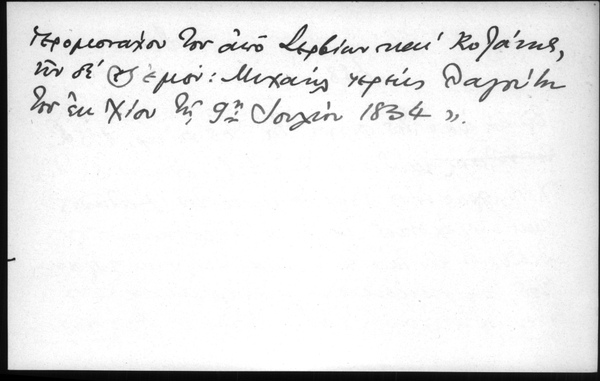 ἱερομονάχου τοῦ ἀπὸ Σερβίων καὶ Κοζάνης,
τῶν δὲ ἐμοῦ: Μιχαὴλ ἱερεὺς
τοῦ ἐκ Χίου τῇ 9ῃ Ἰουλίου 1834 ».